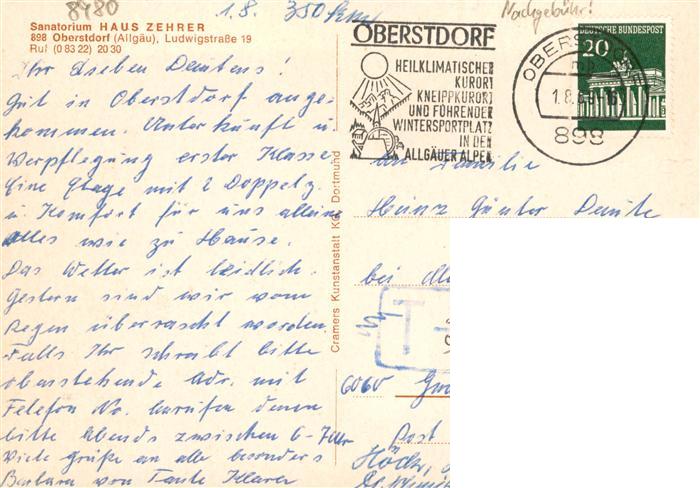 8980
1.8. 350 km
Nachgebühr!
Sanatorium HAUS ZEHRER
898 Oberstdorf (Allgäu), Ludwigstraße 19
Ruf (0 83 22) 20 30
Ihr Lieben Deutens!
Gut in Oberstdorf ange-
kommen. Unterkunft u.
Verpflegung erster Klasse
Eine Etage mit 2 Doppelz.
u. Komfort für uns alleine
alles wie zu Hause.
Das Wetter ist leidlich.
Gestern sind wir vom
Regen überrascht worden
Falls Ihr schreibt bitte
obenstehende Adr. mit
Telefon No.
bitte Abends zwischen 6-7 Uhr
Viele grüße an alle besonders
Barbara von Tante Klara
Cramers Kunstanstalt KG, Dortmund
OBERSTDORF
HEILKLIMATISCHER
KURORT
KNEIPPKURORT
UND FÜHRENDER
WINTERSPORTPLATZ
IN DEN
ALLGÄUER ALPEN
DEUTSCHE BUNDESPOST
20
OBERSTDORF
1.8.69-16
898
An Familie
Heinz Günter
bei
T
6060
Post